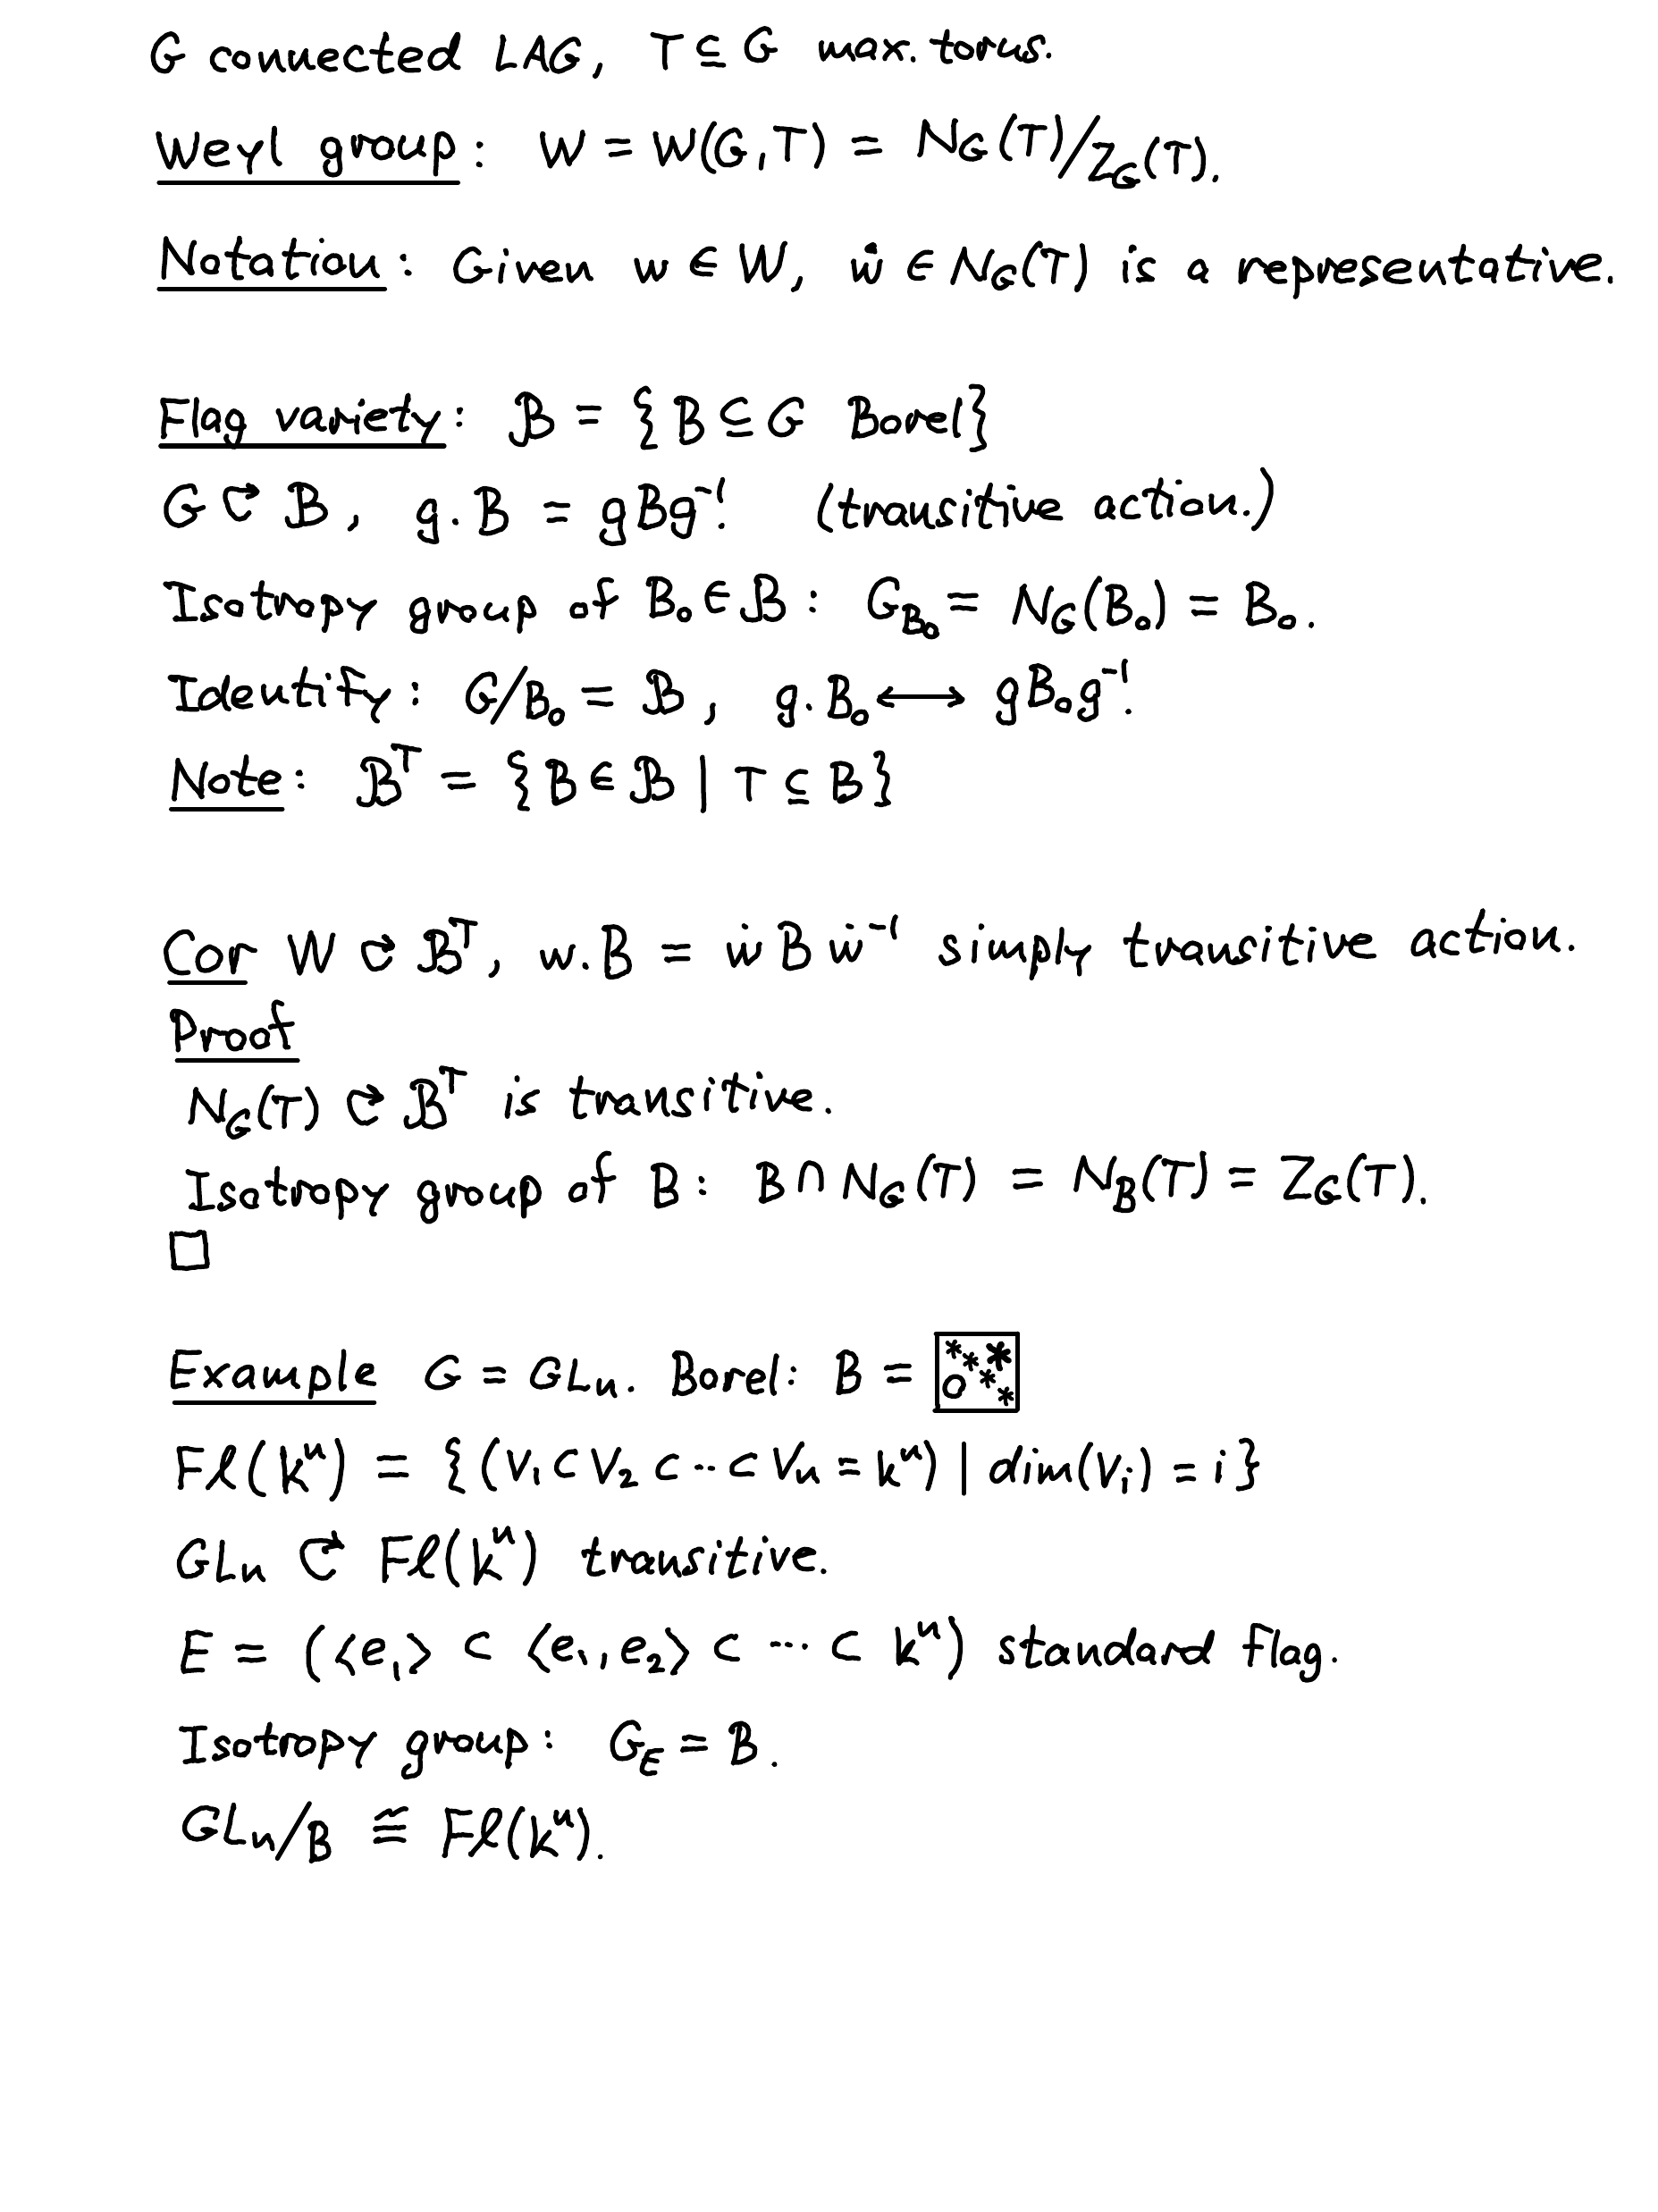 G connected LAG, T ⊆ G max. torus.
Weyl group: W = W(G,T) = N_G(T)/Z_G(T).
Notation: Given w ∈ W, ẇ ∈ N_G(T) is a representative.
Flag variety: 𝓑 = {B ⊆ G Borel}
G ↻ 𝓑, g.B = gBg⁻¹. (transitive action.)
Isotropy group of B₀ ∈ 𝓑: G_{B₀} = N_G(B₀) = B₀.
Identify: G/B₀ = 𝓑, g.B₀ ⟷ gB₀g⁻¹.
Note: 𝓑^T = {B ∈ 𝓑 | T ⊆ B}
Cor W ↻ 𝓑^T, w.B = ẇBẇ⁻¹ simply transitive action.
Proof
N_G(T) ↻ 𝓑^T is transitive.
Isotropy group of B: B ∩ N_G(T) = N_B(T) = Z_G(T).
□
Example G = GLₙ. Borel: B = [* * * 0 * *]
Fℓ(kⁿ) = {(V₁ ⊂ V₂ ⊂ ⋯ ⊂ Vₙ = kⁿ) | dim(Vᵢ) = i}
GLₙ ↻ Fℓ(kⁿ) transitive.
E = (⟨e₁⟩ ⊂ ⟨e₁,e₂⟩ ⊂ ⋯ ⊂ kⁿ) standard flag.
Isotropy group: G_E = B.
GLₙ/B ≅ Fℓ(kⁿ).